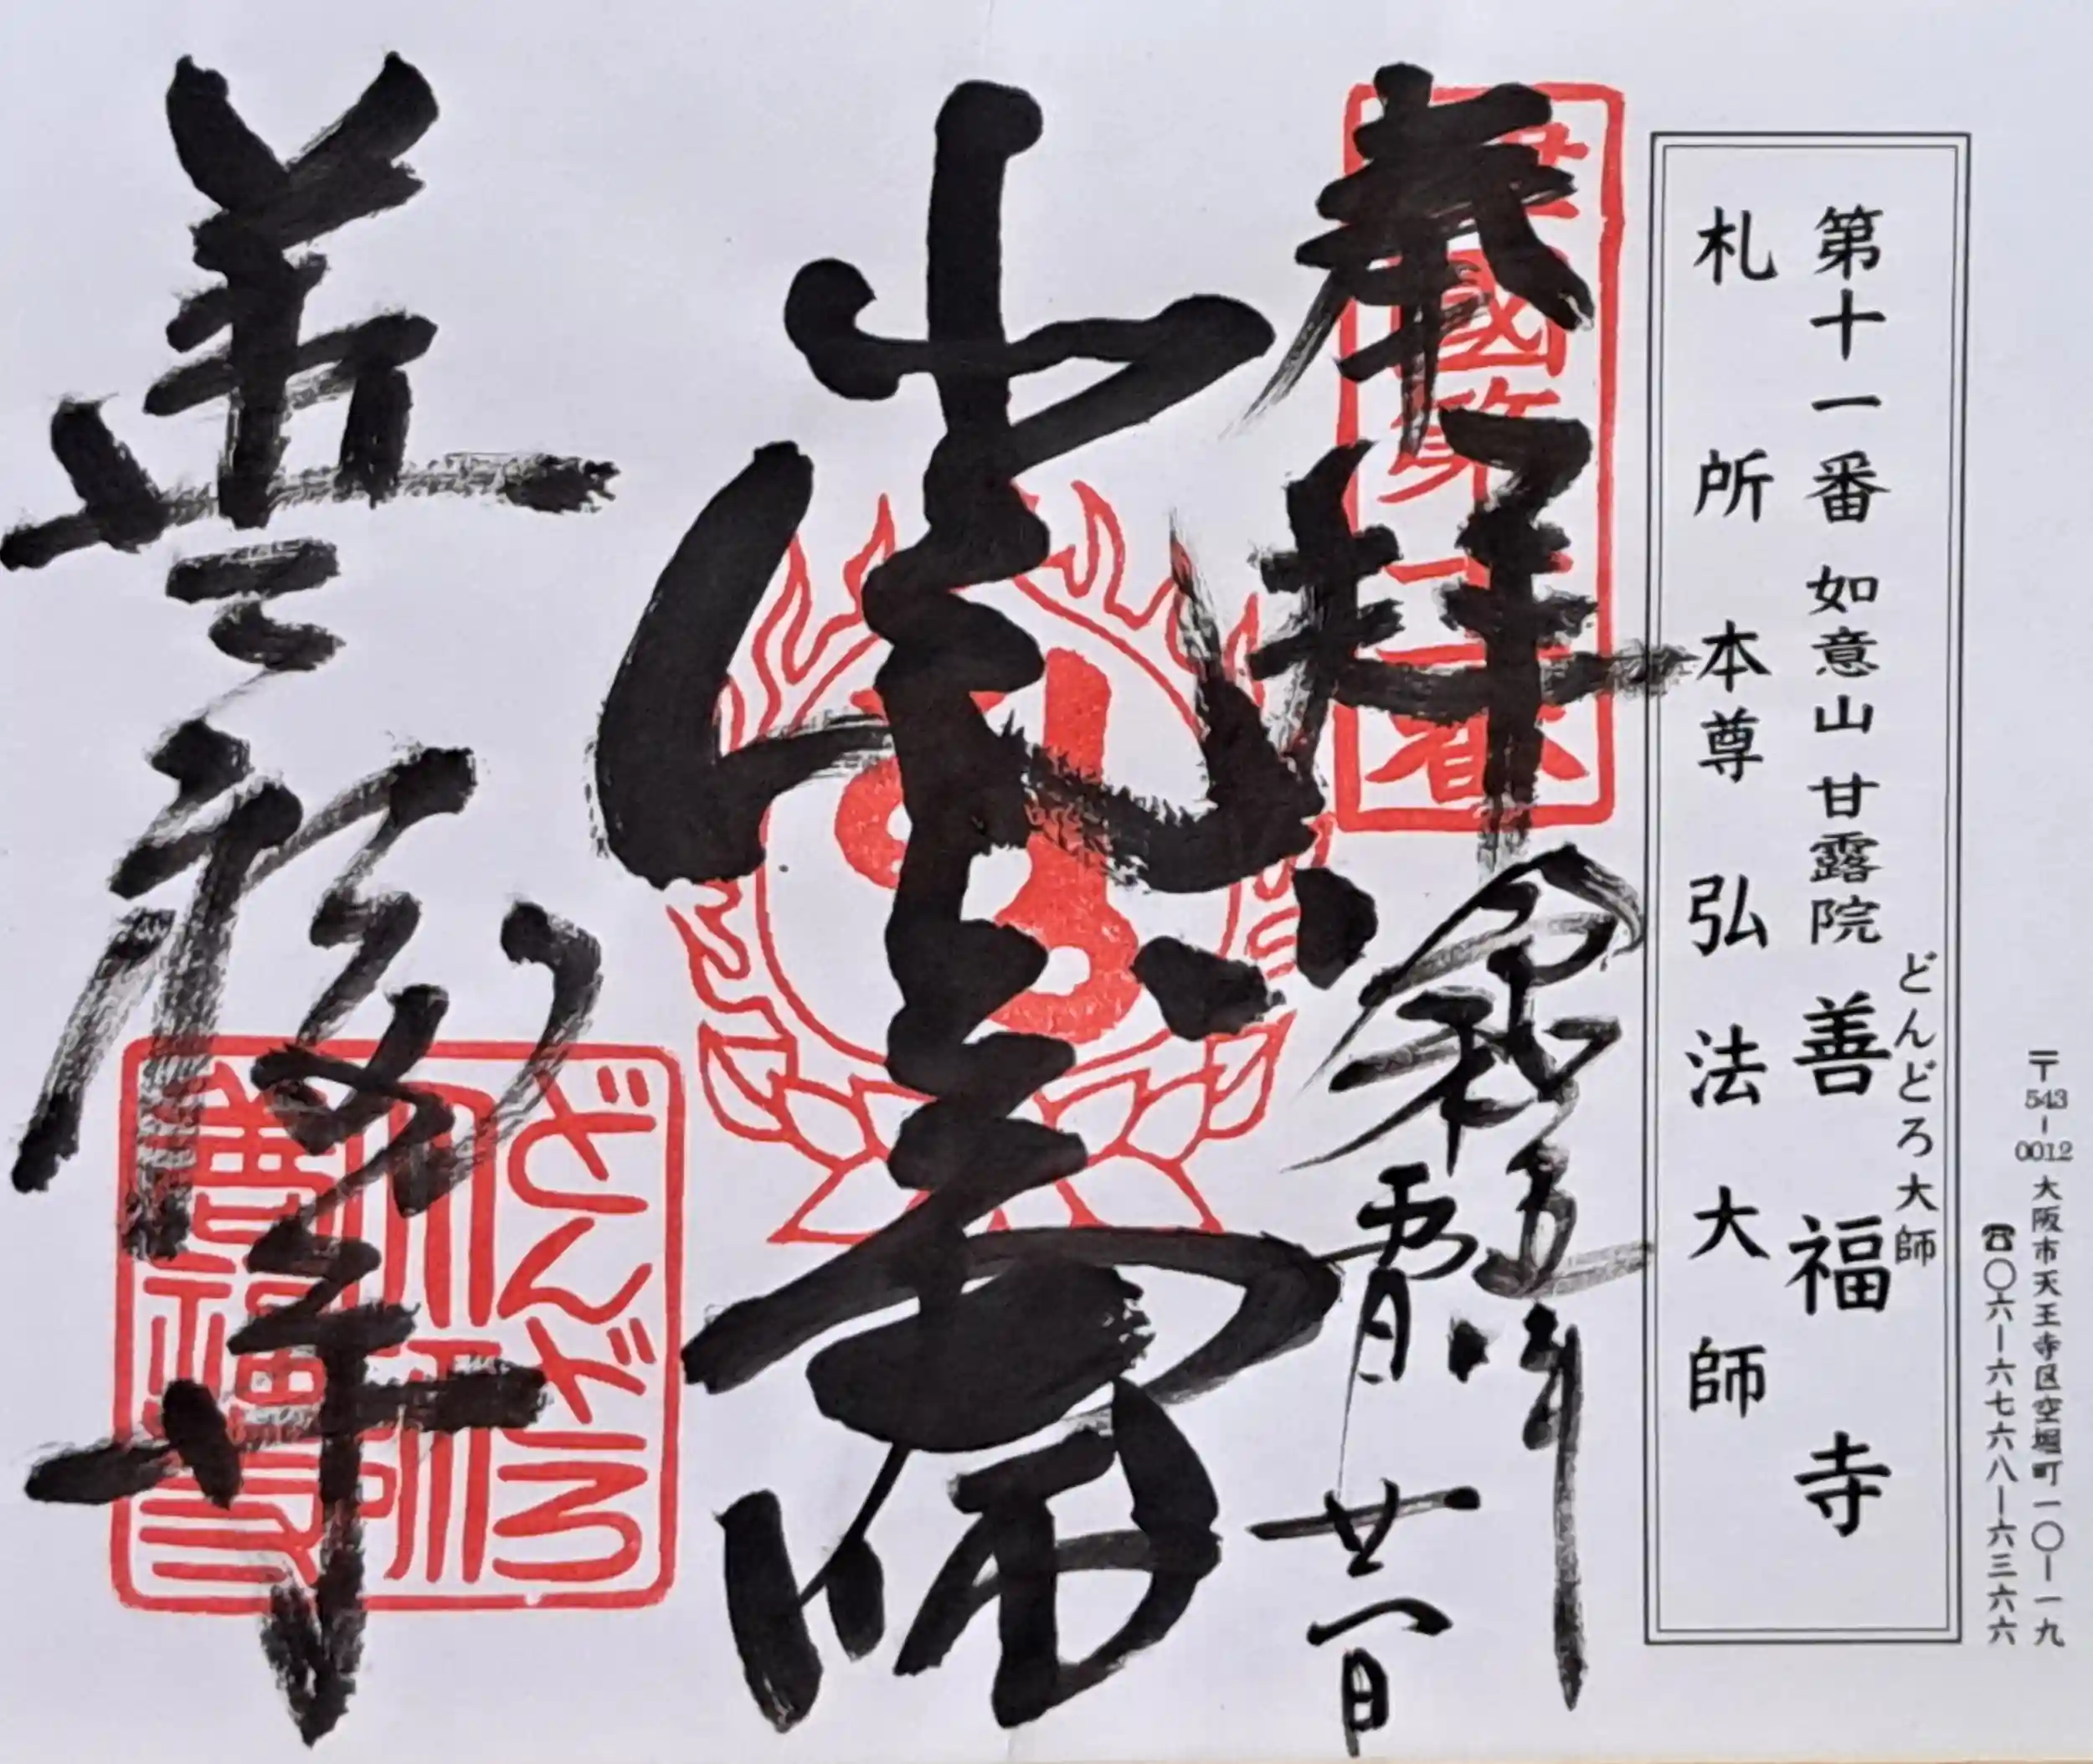 〒543-0012 大阪市天王寺区空堀町一〇-一九
☎〇六-六七六八-六三六六
どんどろ大師
第十一番 如意山 甘露院 善福寺
札所本尊 弘法大師
奉拝
令和
廿一日
國第十一番
善福寺
どんどろ
大師
善福寺